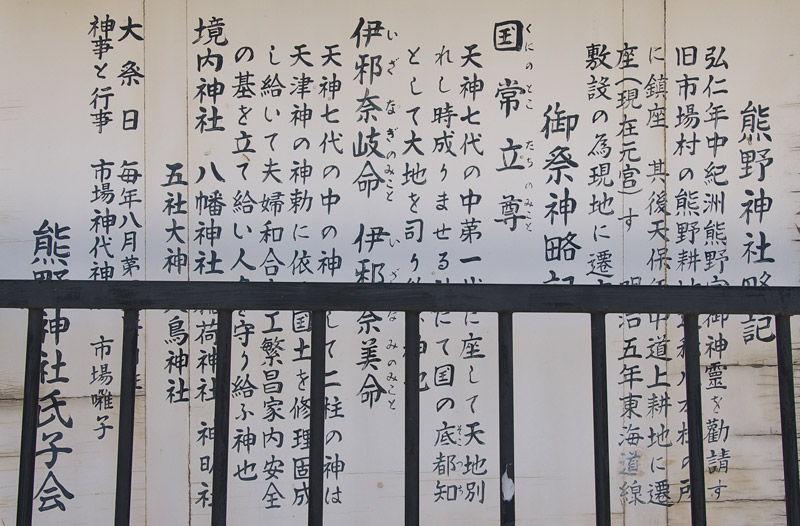 熊野神社略記
弘仁年中紀洲熊野 御神靈を勸請す
旧市場村の熊野耕 八 村の所
に鎮座 其後天保 中道上耕地に遷
座(現在元宮)す 明治五年東海道線
敷設の為現地に遷
御祭神略記
国常立尊
くにのとこたちのみこと
天神七代の中第一 に座して天地別
れし時成りませる にて国の底都知
そこつち
として大地を司り
伊邪奈岐命 伊邪奈美命
いざなぎのみこと いざなみのみこと
天神七代の中の神 して二柱の神は
天津神の神勅に依 国土を修理固成
し給いて夫婦和合 工繁昌家内安全
の基を立て給い人 を守り給ふ神也
境内神社 八幡神社 稲荷神社 神明社
五社大神 鳥神社
大祭日 毎年八月第
神事と行事 市場神代神 市場囃子
熊野神社氏子会